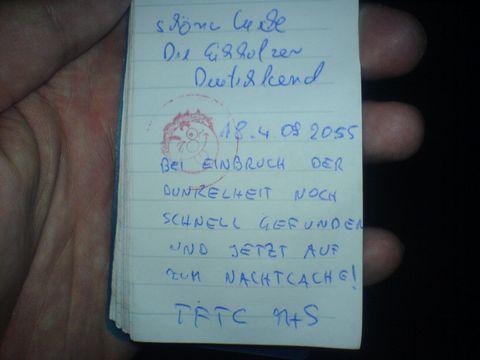 schöne
Die
Deutschland
18.4.09 2055
BEI EINBRUCH DER
DUNKELHEIT NOCH
SCHNELL GEFUNDEN
UND JETZT AUF
ZUM NACHTCACHE!
TFTC N+S